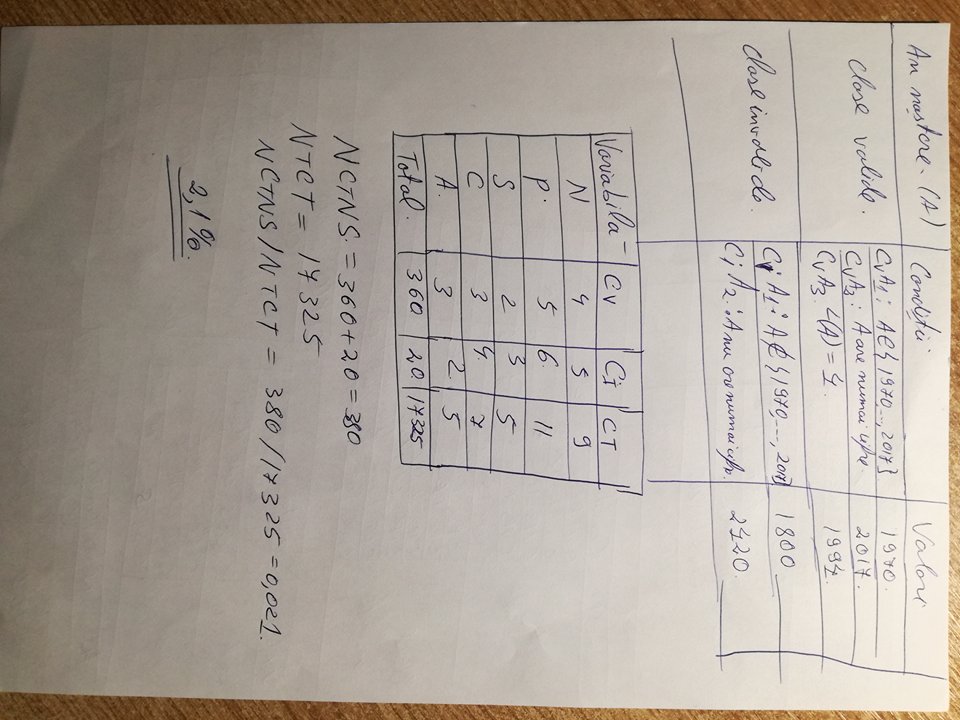 An naștere (A) Condiții Valori
Clase valide. CvA1: A∈{1970...,2017} 1970.
CvA2: A are numai cifre. 2017.
CvA3 L(A) = 4. 1994.
Clase invalide. CiA1: A∉{1970,...,2017} 1800
CiA2: A nu are numai cifre. 2420.
Variabila CV CI CT
N 4 5 9
P. 5 6. 11
S 2 3 5
C 3 4. 7
A. 3 2 5
Total. 360 20 17325
NCTNS. = 360+20 = 380
NTCT = 17325
NCTNS/NTCT = 380/17325 = 0,021.
2,1%.